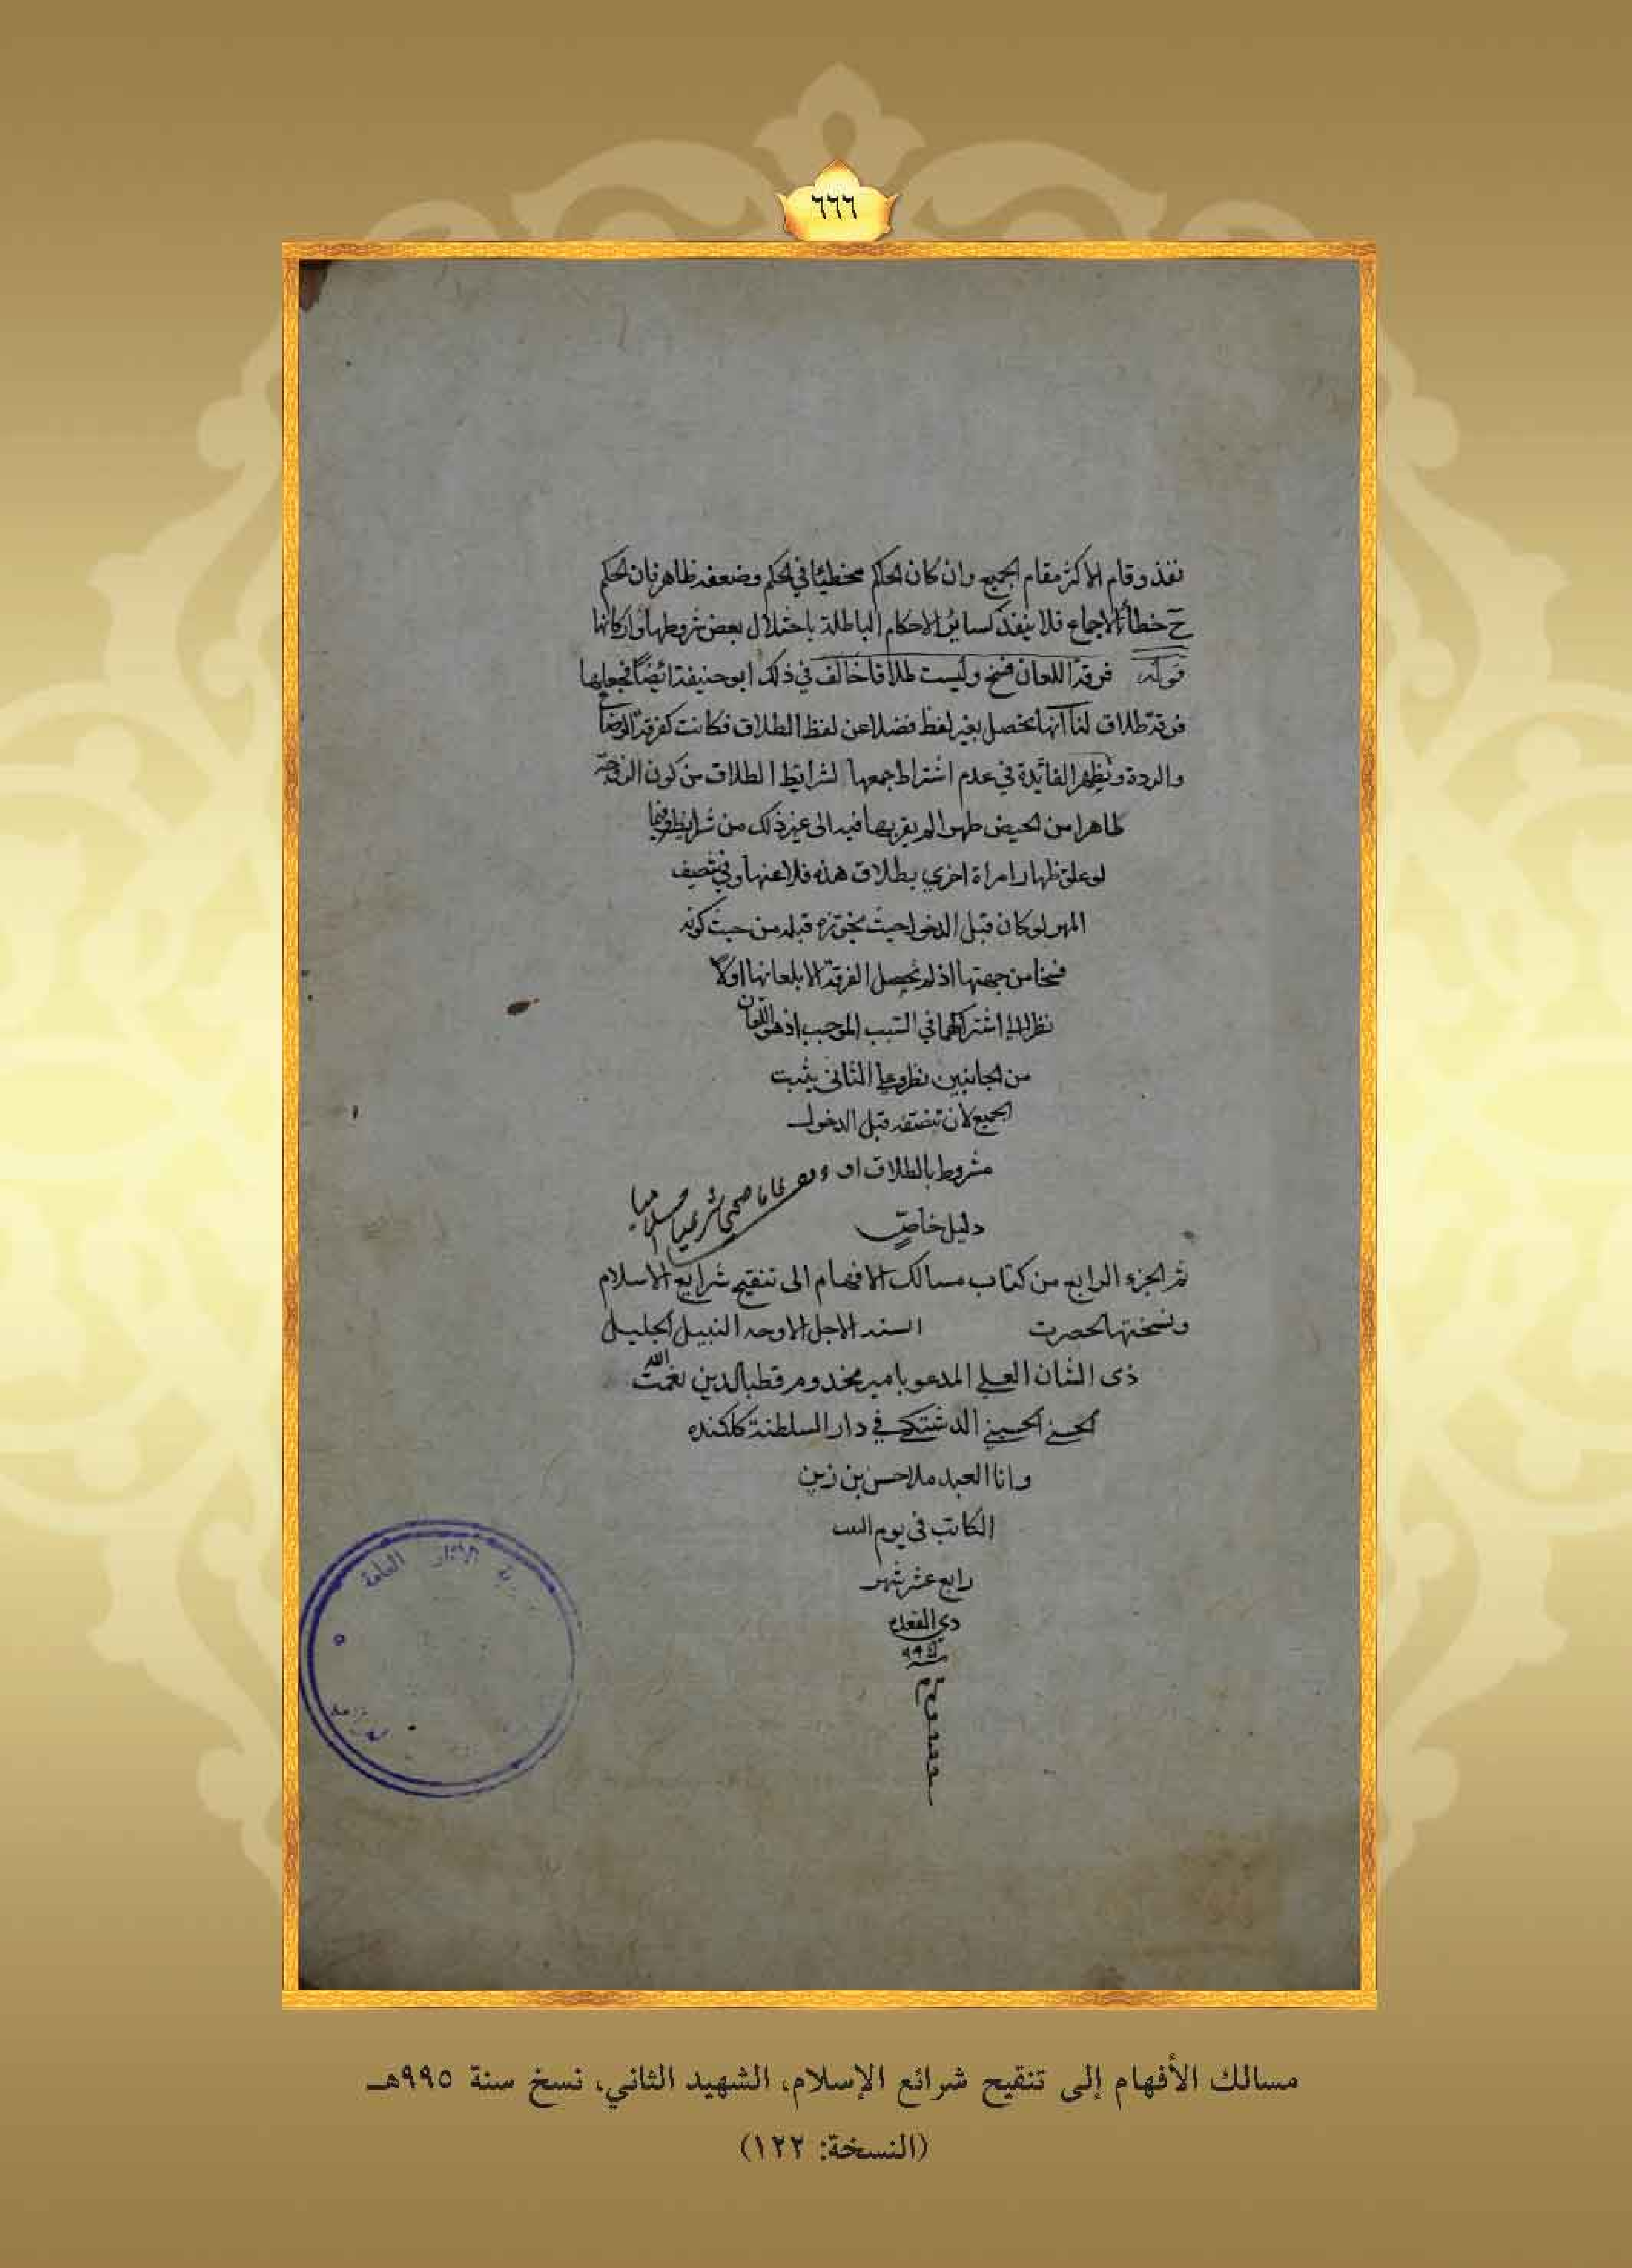 ٦٦٦
نفذ وقام الاكثر مقام الجميع وان كان الحاكم مخطئا في الحكم وضعفه ظاهر فان الحكم
ح خطأ الاجماع فلا ينفذ كسائر الاحكام الباطلة باختلال بعض شروطها واركانها
قوله فرقة اللعان فسخ وليست طلاقا خالف في ذلك ابو حنيفة ايضا فجعلها
فرقة طلاق لنا انها تحصل بغير لفظ فضلا عن لفظ الطلاق فكانت كفرقة الرضاع
والردة وتظهر الفائدة في عدم اشتراط جمعها لشرايط الطلاق من كون الزوجة
طاهرا من الحيض طهرا لم يقربها فيه الى غير ذلك من شرايط
لو علق ظهار امراة اخرى بطلاق هذه فلاعنها وفي تنصيف
المهر لو كان قبل الدخول حيث قبله من حيث كونه
فسخا من جهتها اذ لم تحصل الفرقة الا بلعانها اولا
نظرا الى اشتراكهما في السبب الموجب اذ هو اللعان
من الجانبين نظر وعلى الثاني يثبت
الجميع لان تنصفه قبل الدخول
مشروط بالطلاق او
دليل خاص
تم الجزء الرابع من كتاب مسالك الافهام الى تنقيح شرايع الاسلام
ونسختها لحضرت السند الاجل الاوحد النبيل الجليل
ذى الشان العلي المدعو بامير مخدوم قطب الدين نعمت الله
الحسني الحسيني الدشتكي في دار السلطنة كلكنده
وانا العبد ملا حسن بن زين
الكاتب في يوم
رابع عشر شهر
ذي القعدة
سنة
الآثار العامة
مسالك الأفهام إلى تنقيح شرائع الإسلام، الشهيد الثاني، نسخ سنة ٩٩٥هـ
(النسخة: ١٢٢)